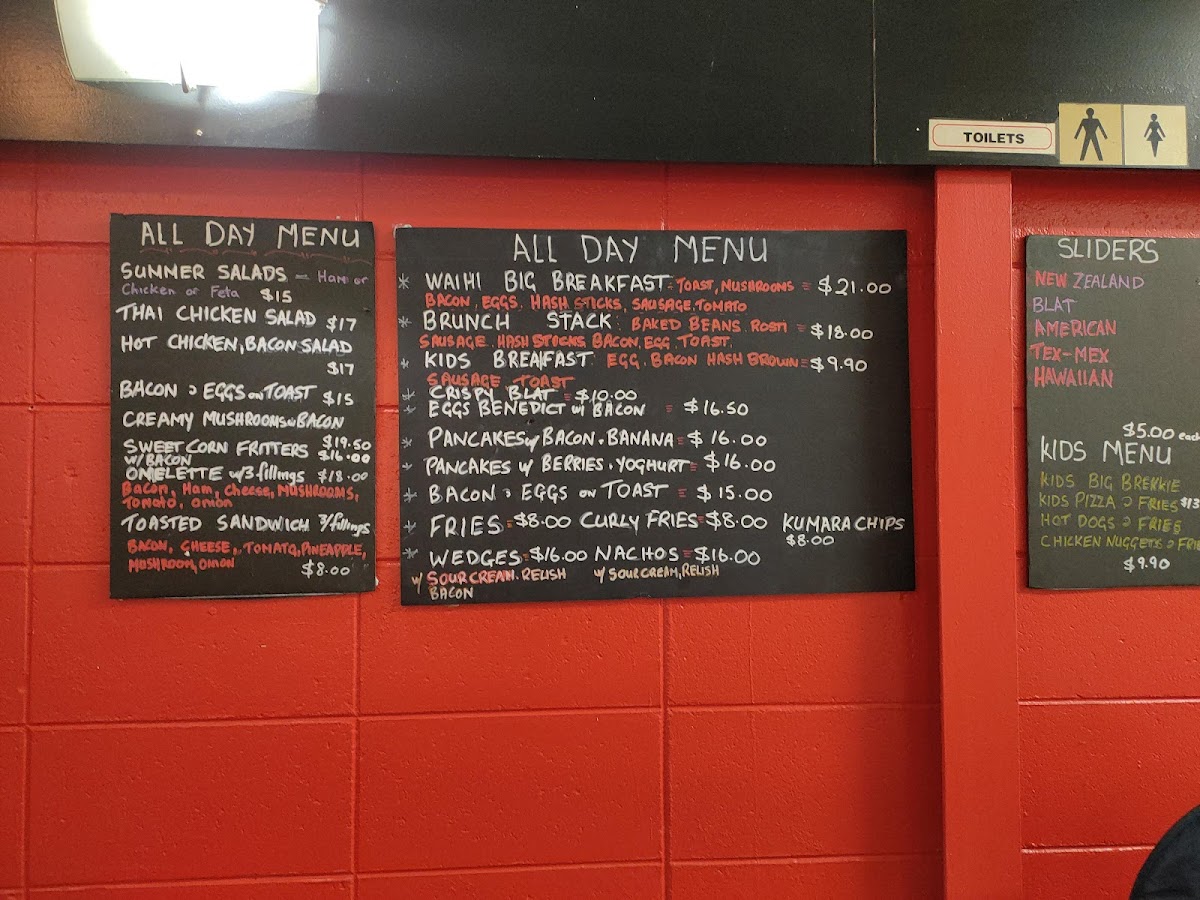 TOILETS
ALL DAY MENU
SUMMER SALADS — Ham or
Chicken or Feta $15
THAI CHICKEN SALAD $17
HOT CHICKEN, BACON SALAD
$17
BACON & EGGS on TOAST $15
CREAMY MUSHROOMS w BACON
$19.50
SWEET CORN FRITTERS $16.00
W/ BACON
OMELETTE w/3 fillings $18.00
Bacon, Ham, Cheese, MUSHROOMS,
Tomato, onion
TOASTED SANDWICH 3/fillings
BACON, CHEESE, TOMATO, PINEAPPLE,
MUSHROOM, ONION $8.00
ALL DAY MENU
* WAIHI BIG BREAKFAST: TOAST, MUSHROOMS = $21.00
BACON, EGGS, HASH STICKS, SAUSAGE, TOMATO
* BRUNCH STACK: BAKED BEANS. ROSTI = $18.00
SAUSAGE. HASH STICKS, BACON, EGG, TOAST.
* KIDS BREAKFAST: EGG, BACON HASH BROWN = $9.90
SAUSAGE TOAST
* CRISPY BLAT = $10.00
* EGGS BENEDICT w/ BACON = $16.50
* PANCAKES w/ BACON & BANANA = $16.00
* PANCAKES w/ BERRIES & YOGHURT = $16.00
* BACON & EGGS on TOAST = $15.00
* FRIES = $8.00 CURLY FRIES = $8.00 KUMARA CHIPS
$8.00
* WEDGES = $16.00 NACHOS = $16.00
w/ SOUR CREAM. RELISH w/ SOUR CREAM, RELISH
BACON
SLIDERS
NEW ZEALAND
BLAT
AMERICAN
TEX-MEX
HAWAIIAN
$5.00 each
KIDS MENU
KIDS BIG BREKKIE
KIDS PIZZA & FRIES $13
HOT DOGS & FRIES
CHICKEN NUGGETS & FRIE
$9.90